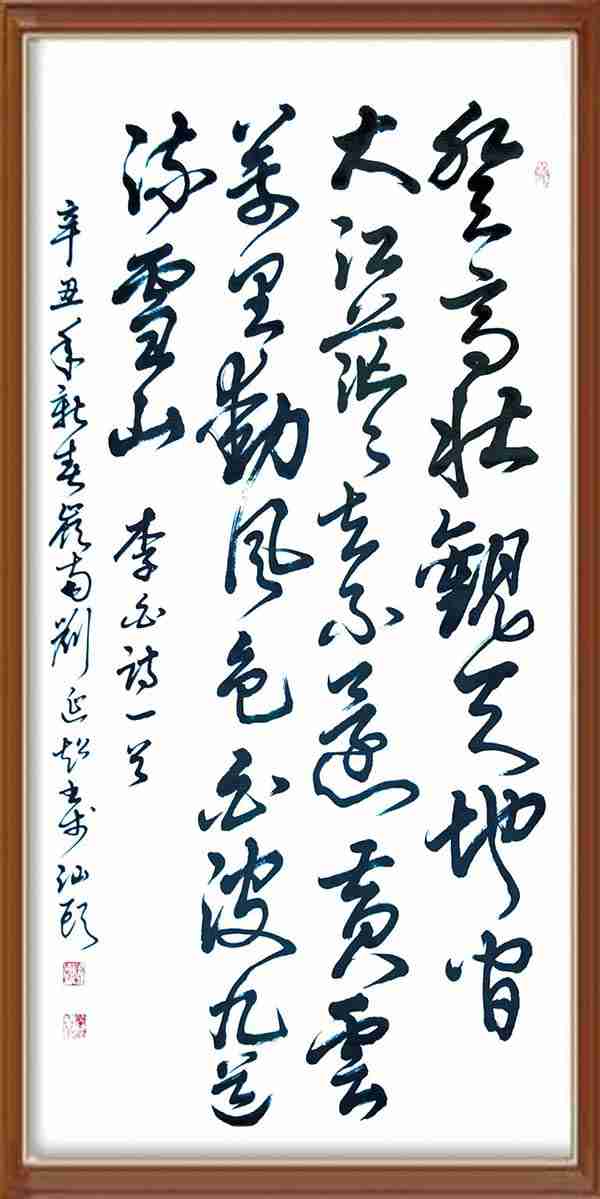 登高壯觀天地間
大江茫々去不還黃雲
萬里動風色白波九道
流雪山 李白詩一首
辛丑年新春嶺南劉延超書於汕頭